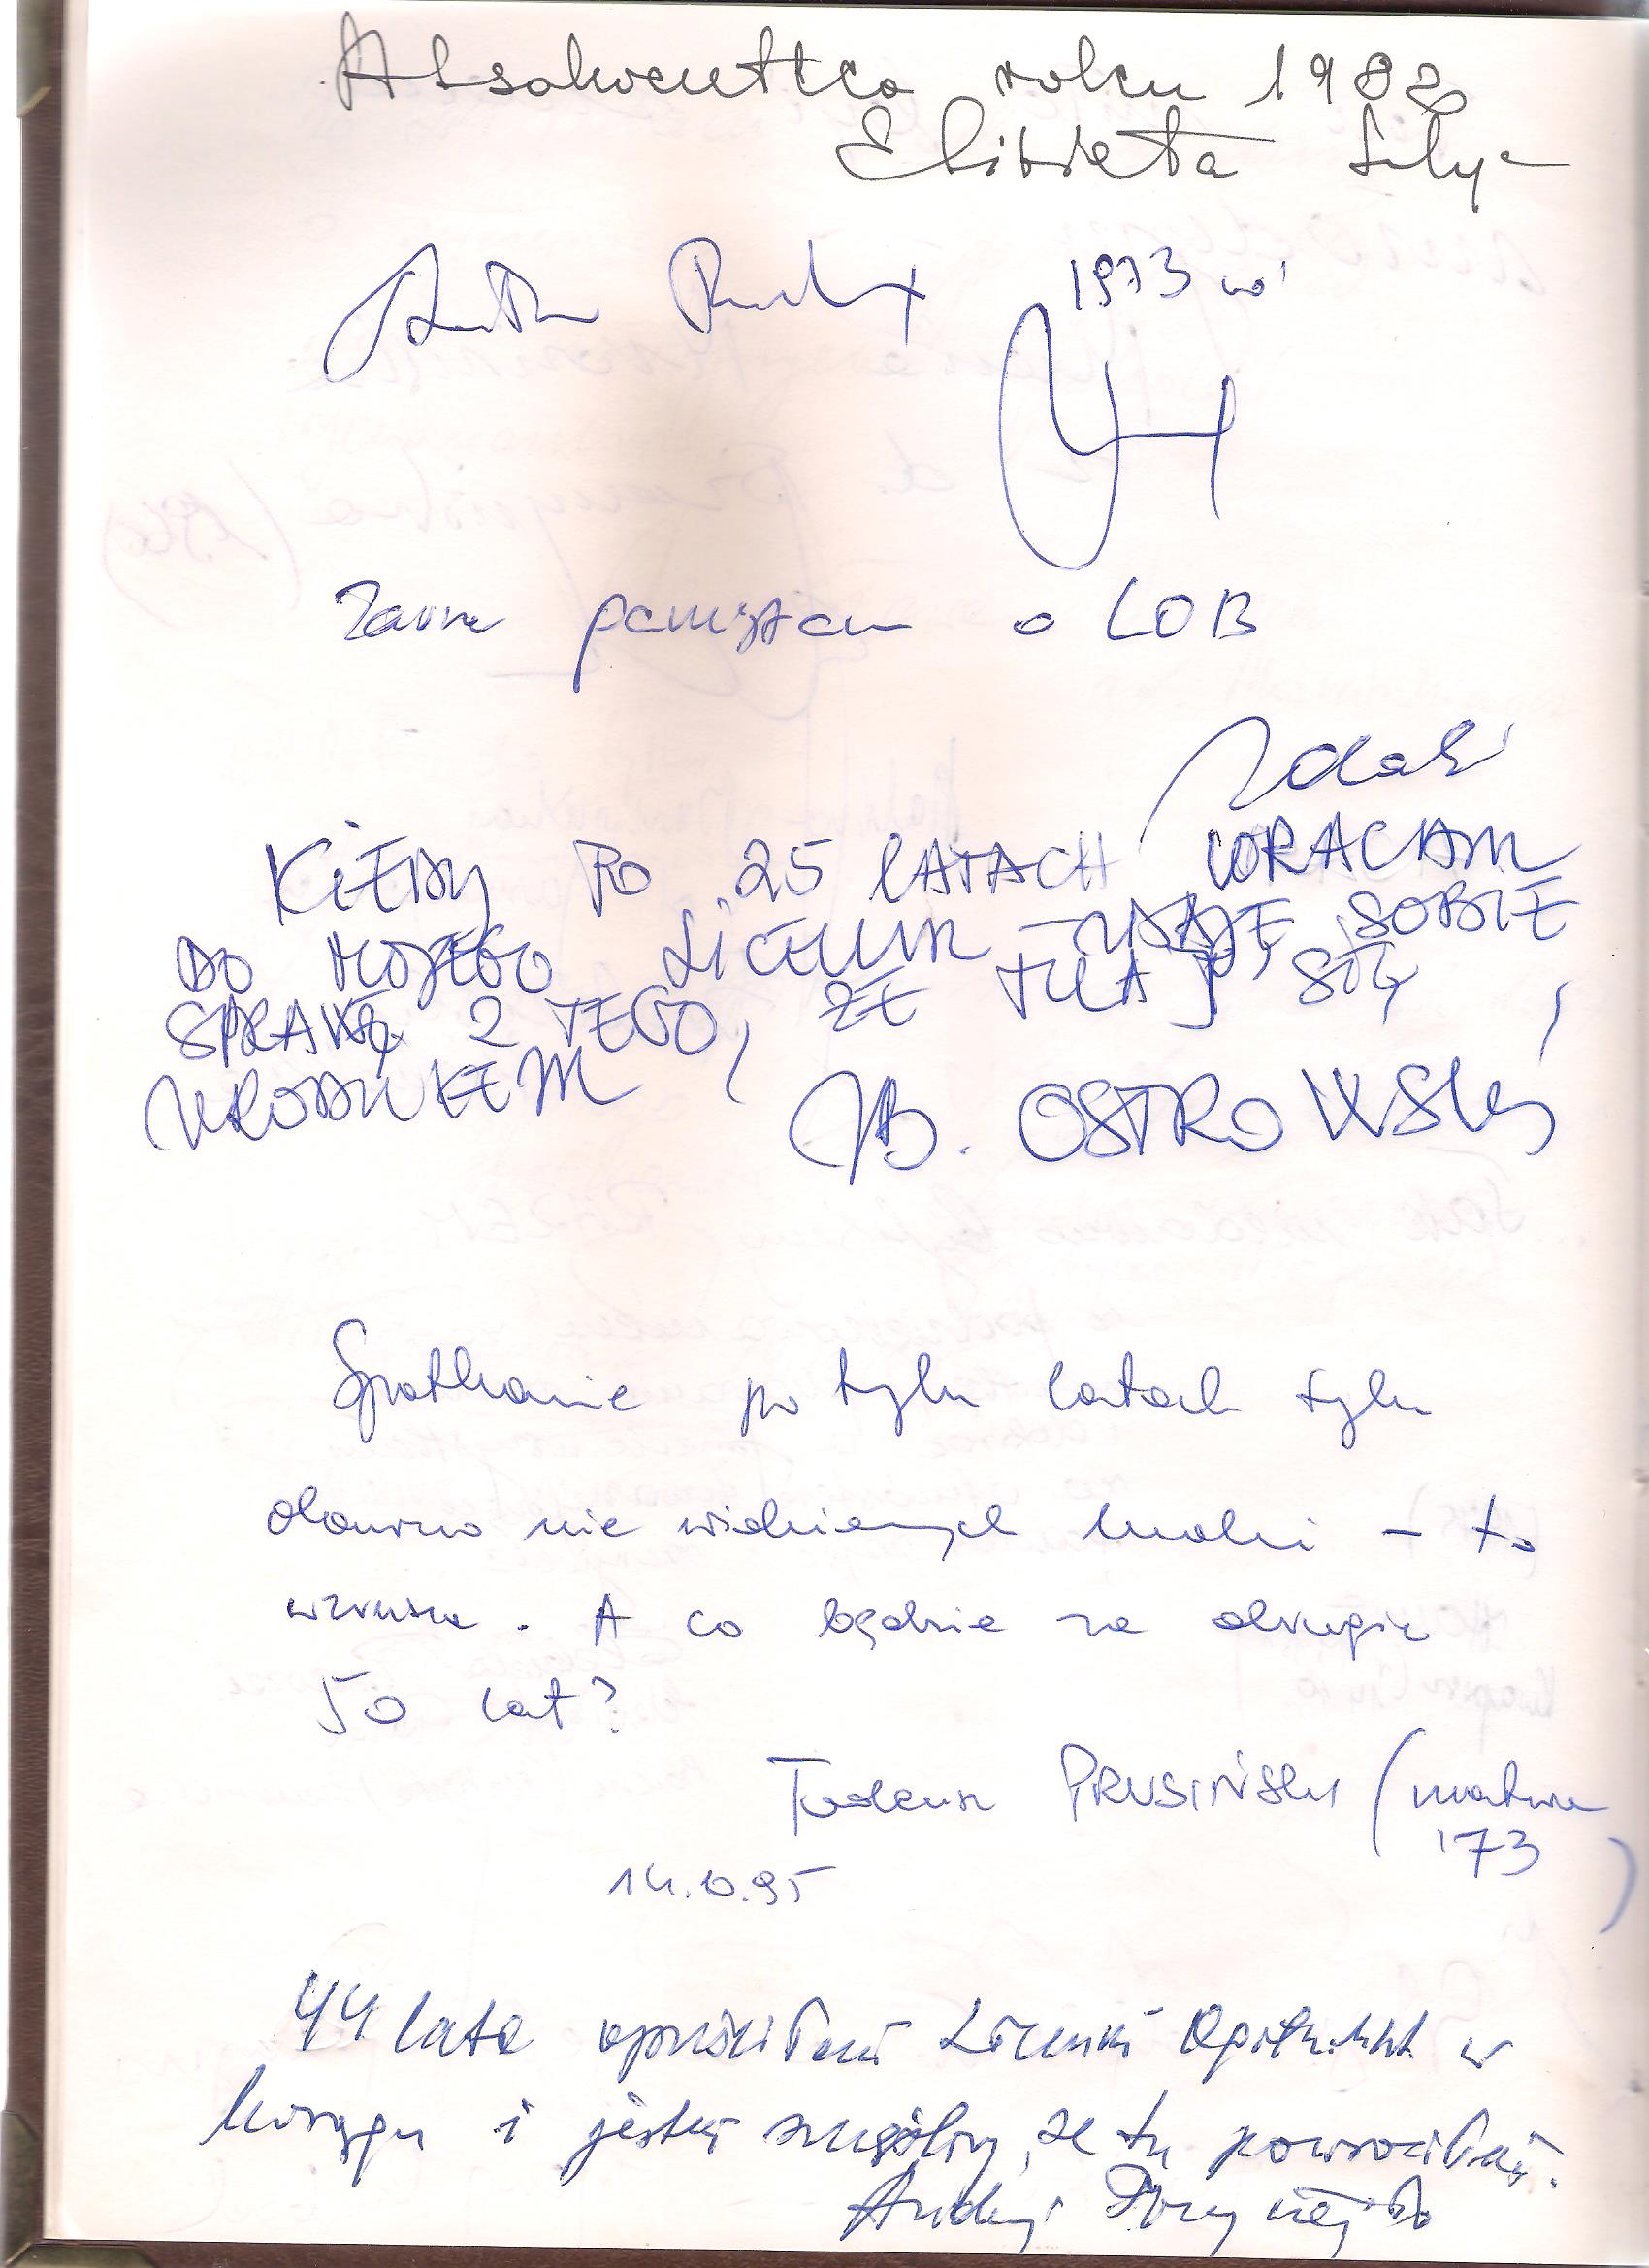 Absolwentka roku 1982
Elżbieta
1973 w
Zawsze pamiętam o LOB
KIEDY PO 25 LATACH WRACAM
DO MOJEGO LICEUM – ZDAJĘ SOBIE
SPRAWĘ Z TEGO, ŻE TUTAJ SIĘ
URODZIŁEM,
B. OSTROWSKI
Spotkanie po tylu latach tylu
dawno nie widzianych ludzi – to
wzrusza. A co będzie za drugie
50 lat?
Tadeusz PRUSIŃSKI (matura
'73)
14.10.95
44 lata opuściłem Liceum Ogól. w
i jestem szczęśliwy, że tu powróciłem.
Andrzej